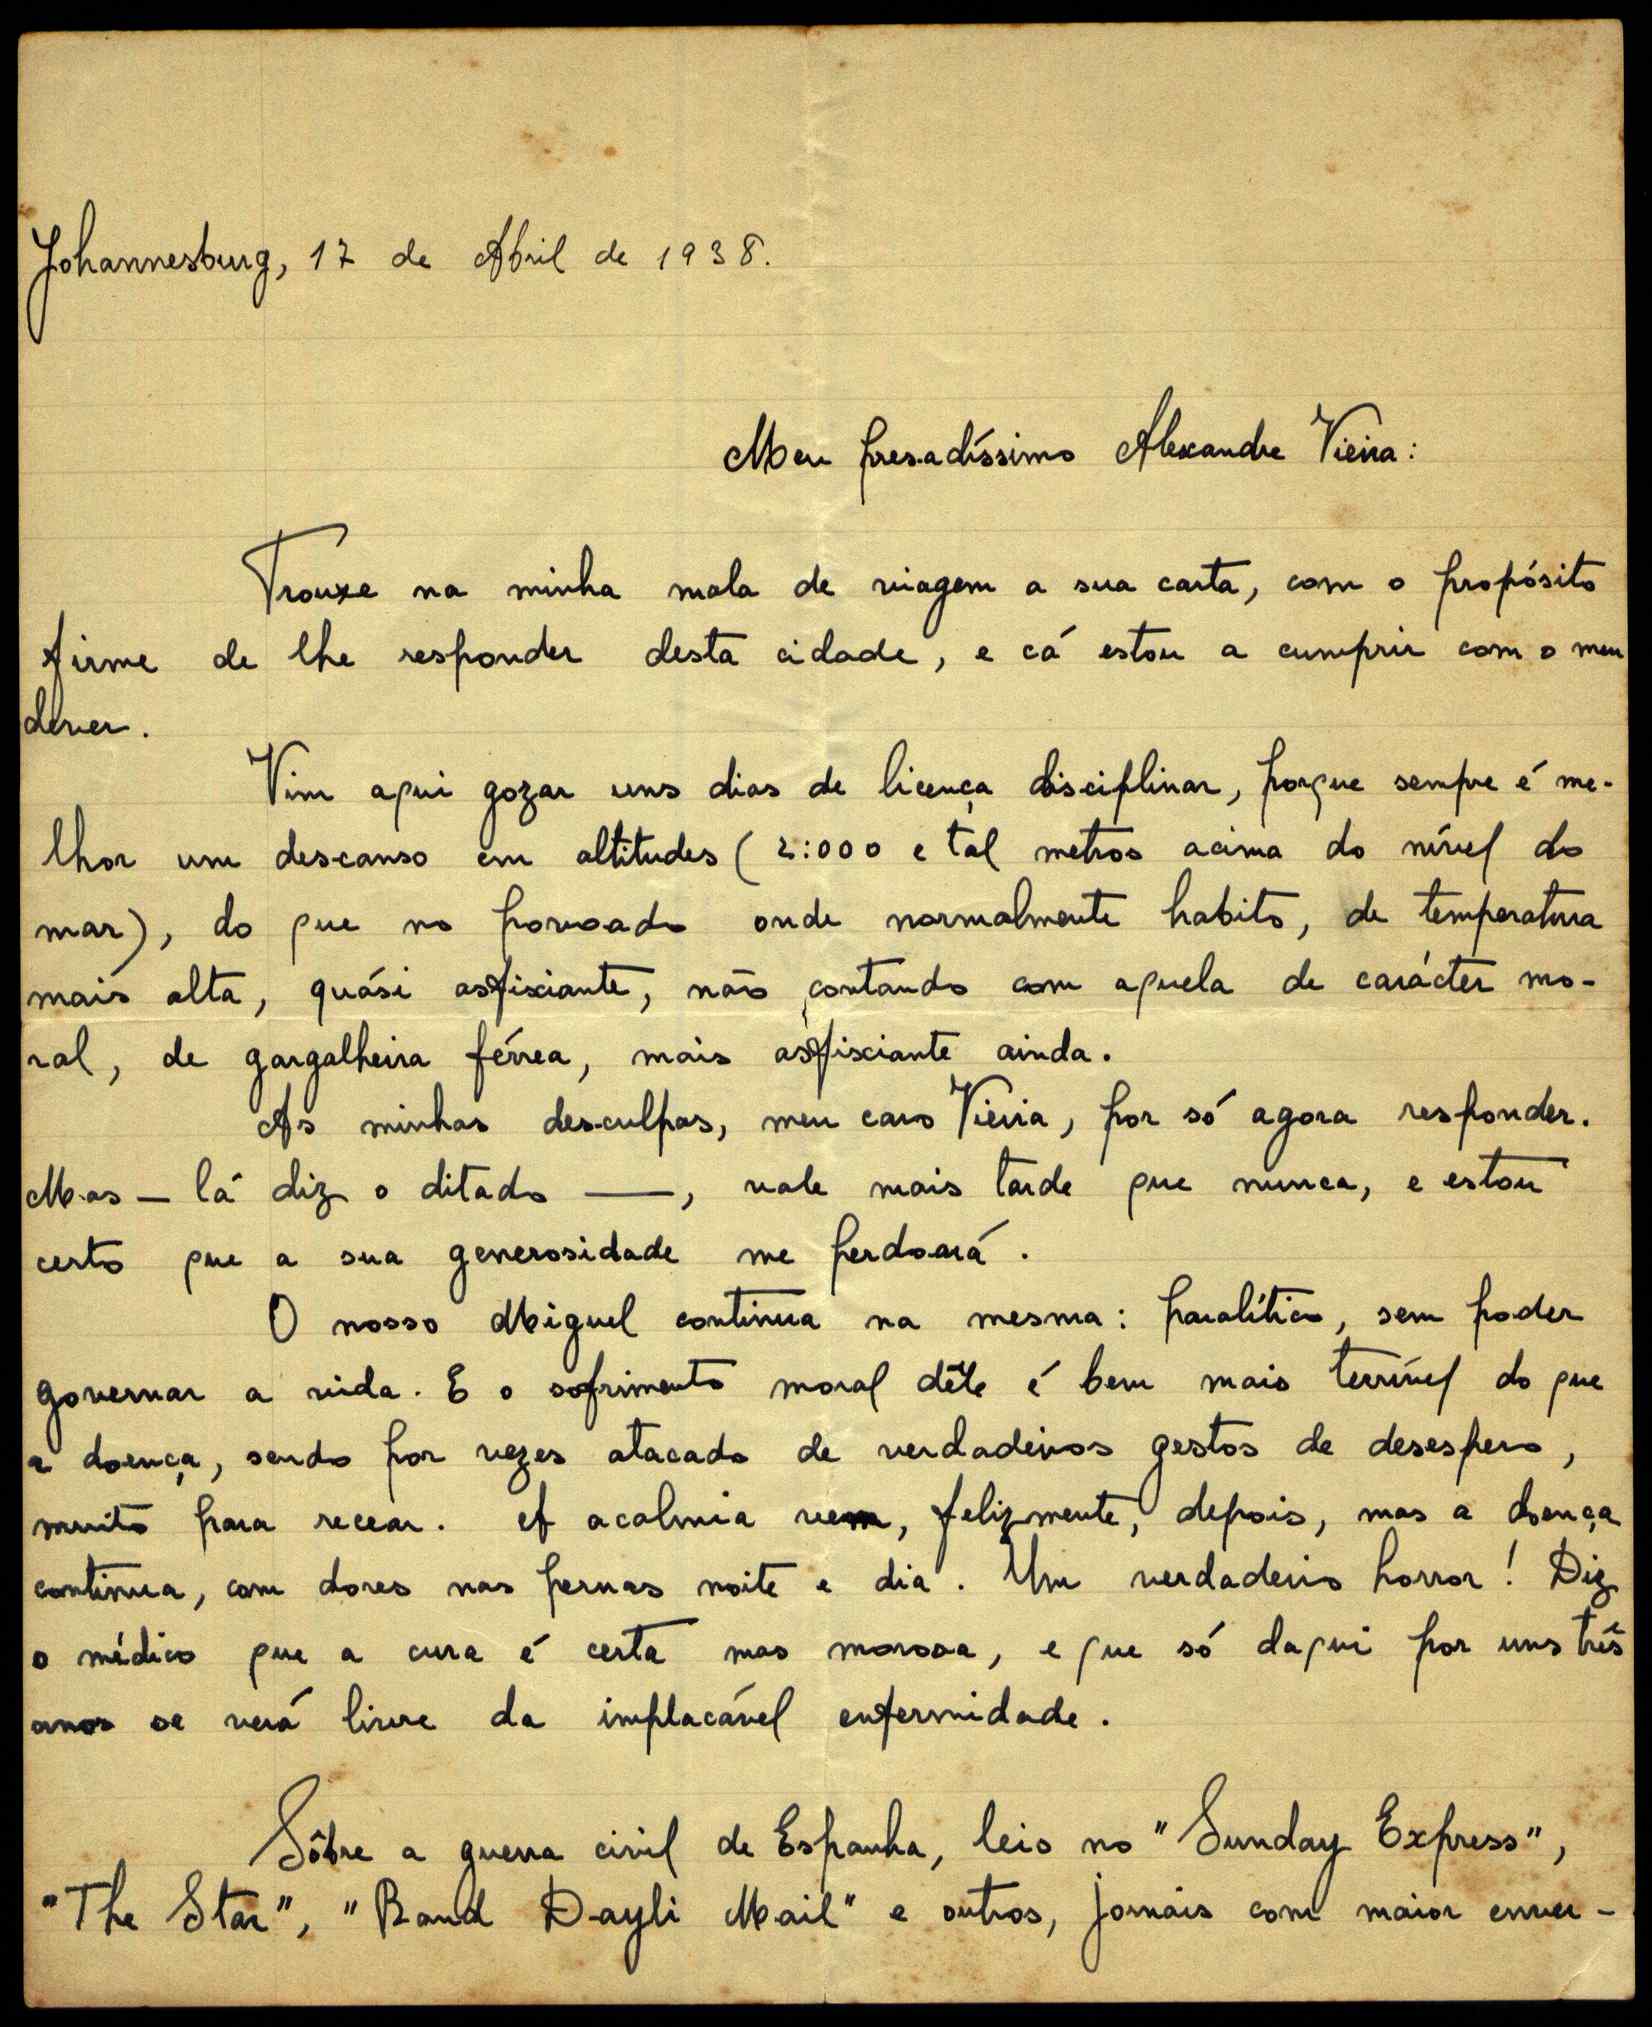 Johannesburg, 17 de Abril de 1938.
Meu presadíssimo Alexandre Vieira:
Trouxe na minha mala de viagem a sua carta, com o propósito
firme de lhe responder desta cidade, e cá estou a cumprir com o meu
dever.
Vim aqui gozar uns dias de licença disciplinar, porque sempre é me-
lhor um descanso em altitudes (2:000 e tal metros acima do nível do
mar), do que no povoado onde normalmente habito, de temperatura
mais alta, quási asfixiante, não contando com aquela de carácter mo-
ral, de gargalheira férrea, mais asfixiante ainda.
As minhas desculpas, meu caro Vieira, por só agora responder.
Mas — lá diz o ditado —, vale mais tarde que nunca, e estou
certo que a sua generosidade me perdoará.
O nosso Miguel continua na mesma: paralítico, sem poder
governar a vida. E o sofrimento moral dêle é bem mais terrível do que
a doença, sendo por vezes atacado de verdadeiros gestos de desespero,
muito para recear. A acalmia vem, felizmente, depois, mas a doença
continua, com dores nas pernas noite e dia. Um verdadeiro horror! Diz
o médico que a cura é certa mas morosa, e que só daqui por uns três
anos se verá livre da implacável enfermidade.
Sôbre a guerra civil de Espanha, leio no "Sunday Express",
"The Star", "Rand Dayli Mail" e outros, jornais com maior enver-